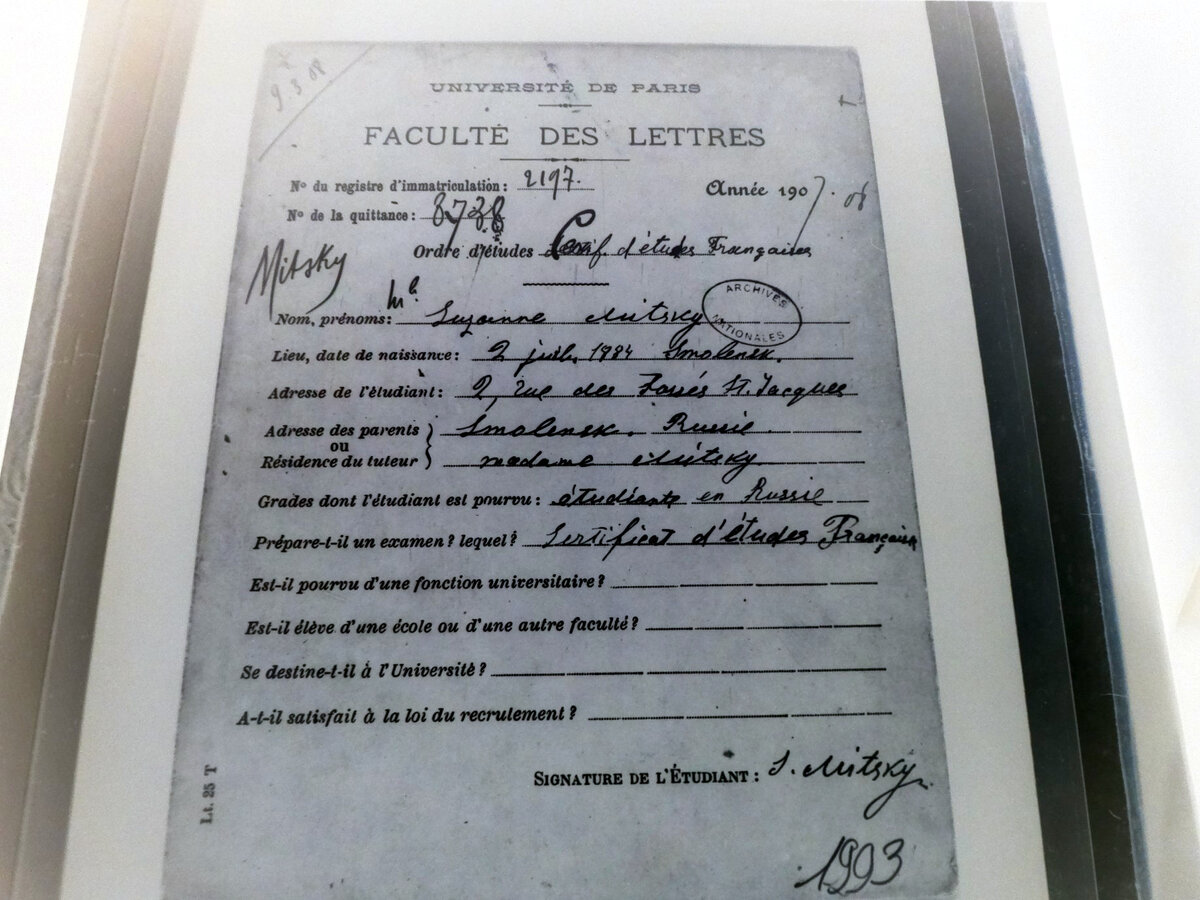 9.3.08
UNIVERSITÉ DE PARIS
FACULTÉ DES LETTRES
N° du registre d'immatriculation : 2197.
Année 1907.08
N° de la quittance : 8738
Ordre d'études Certif. d'études Françaises
Mitsky
Nom, prénoms : Mlle Suzanne Mitsky
ARCHIVES NATIONALES
Lieu, date de naissance : 2 juil. 1884 Smolensk.
Adresse de l'étudiant : 2, rue des Fossés St. Jacques
Adresse des parents Smolensk. Russie.
ou
Résidence du tuteur madame Mitsky
Grades dont l'étudiant est pourvu : étudiante en Russie
Prépare-t-il un examen ? lequel ? Sertificat d'études Françaises
Est-il pourvu d'une fonction universitaire ?
Est-il élève d'une école ou d'une autre faculté ?
Se destine-t-il à l'Université ?
A-t-il satisfait à la loi du recrutement ?
Lt. 25 T
SIGNATURE DE L'ÉTUDIANT : S. Mitsky
1993